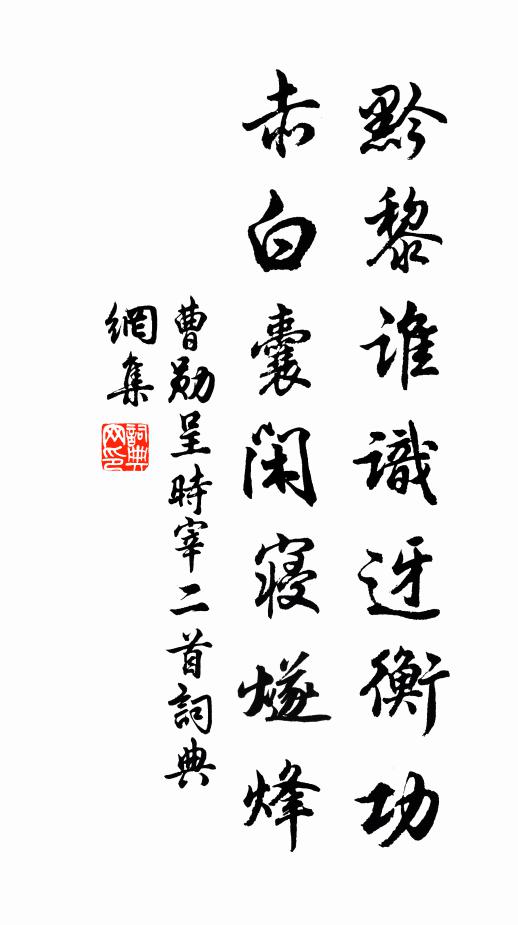 黔黎誰識迓衡功
赤白囊閑寢燧烽
曹勛呈時宰二首詞典
網集
詞典
网印